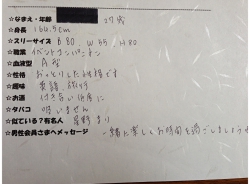 ☆なまえ・年齢 27歳
☆身長 164.5cm
☆スリーサイズ B.80 W.55 H.80
☆職業 イベントコンパニオン
☆血液型 A型
☆性格 おっとりした性格です
☆趣味 旅行
☆お酒 付き合い程度に
☆タバコ 吸いません
☆似ている?有名人 星野まり
☆男性会員さまへメッセージ 一緒に楽しくお時間を過ごしましょう